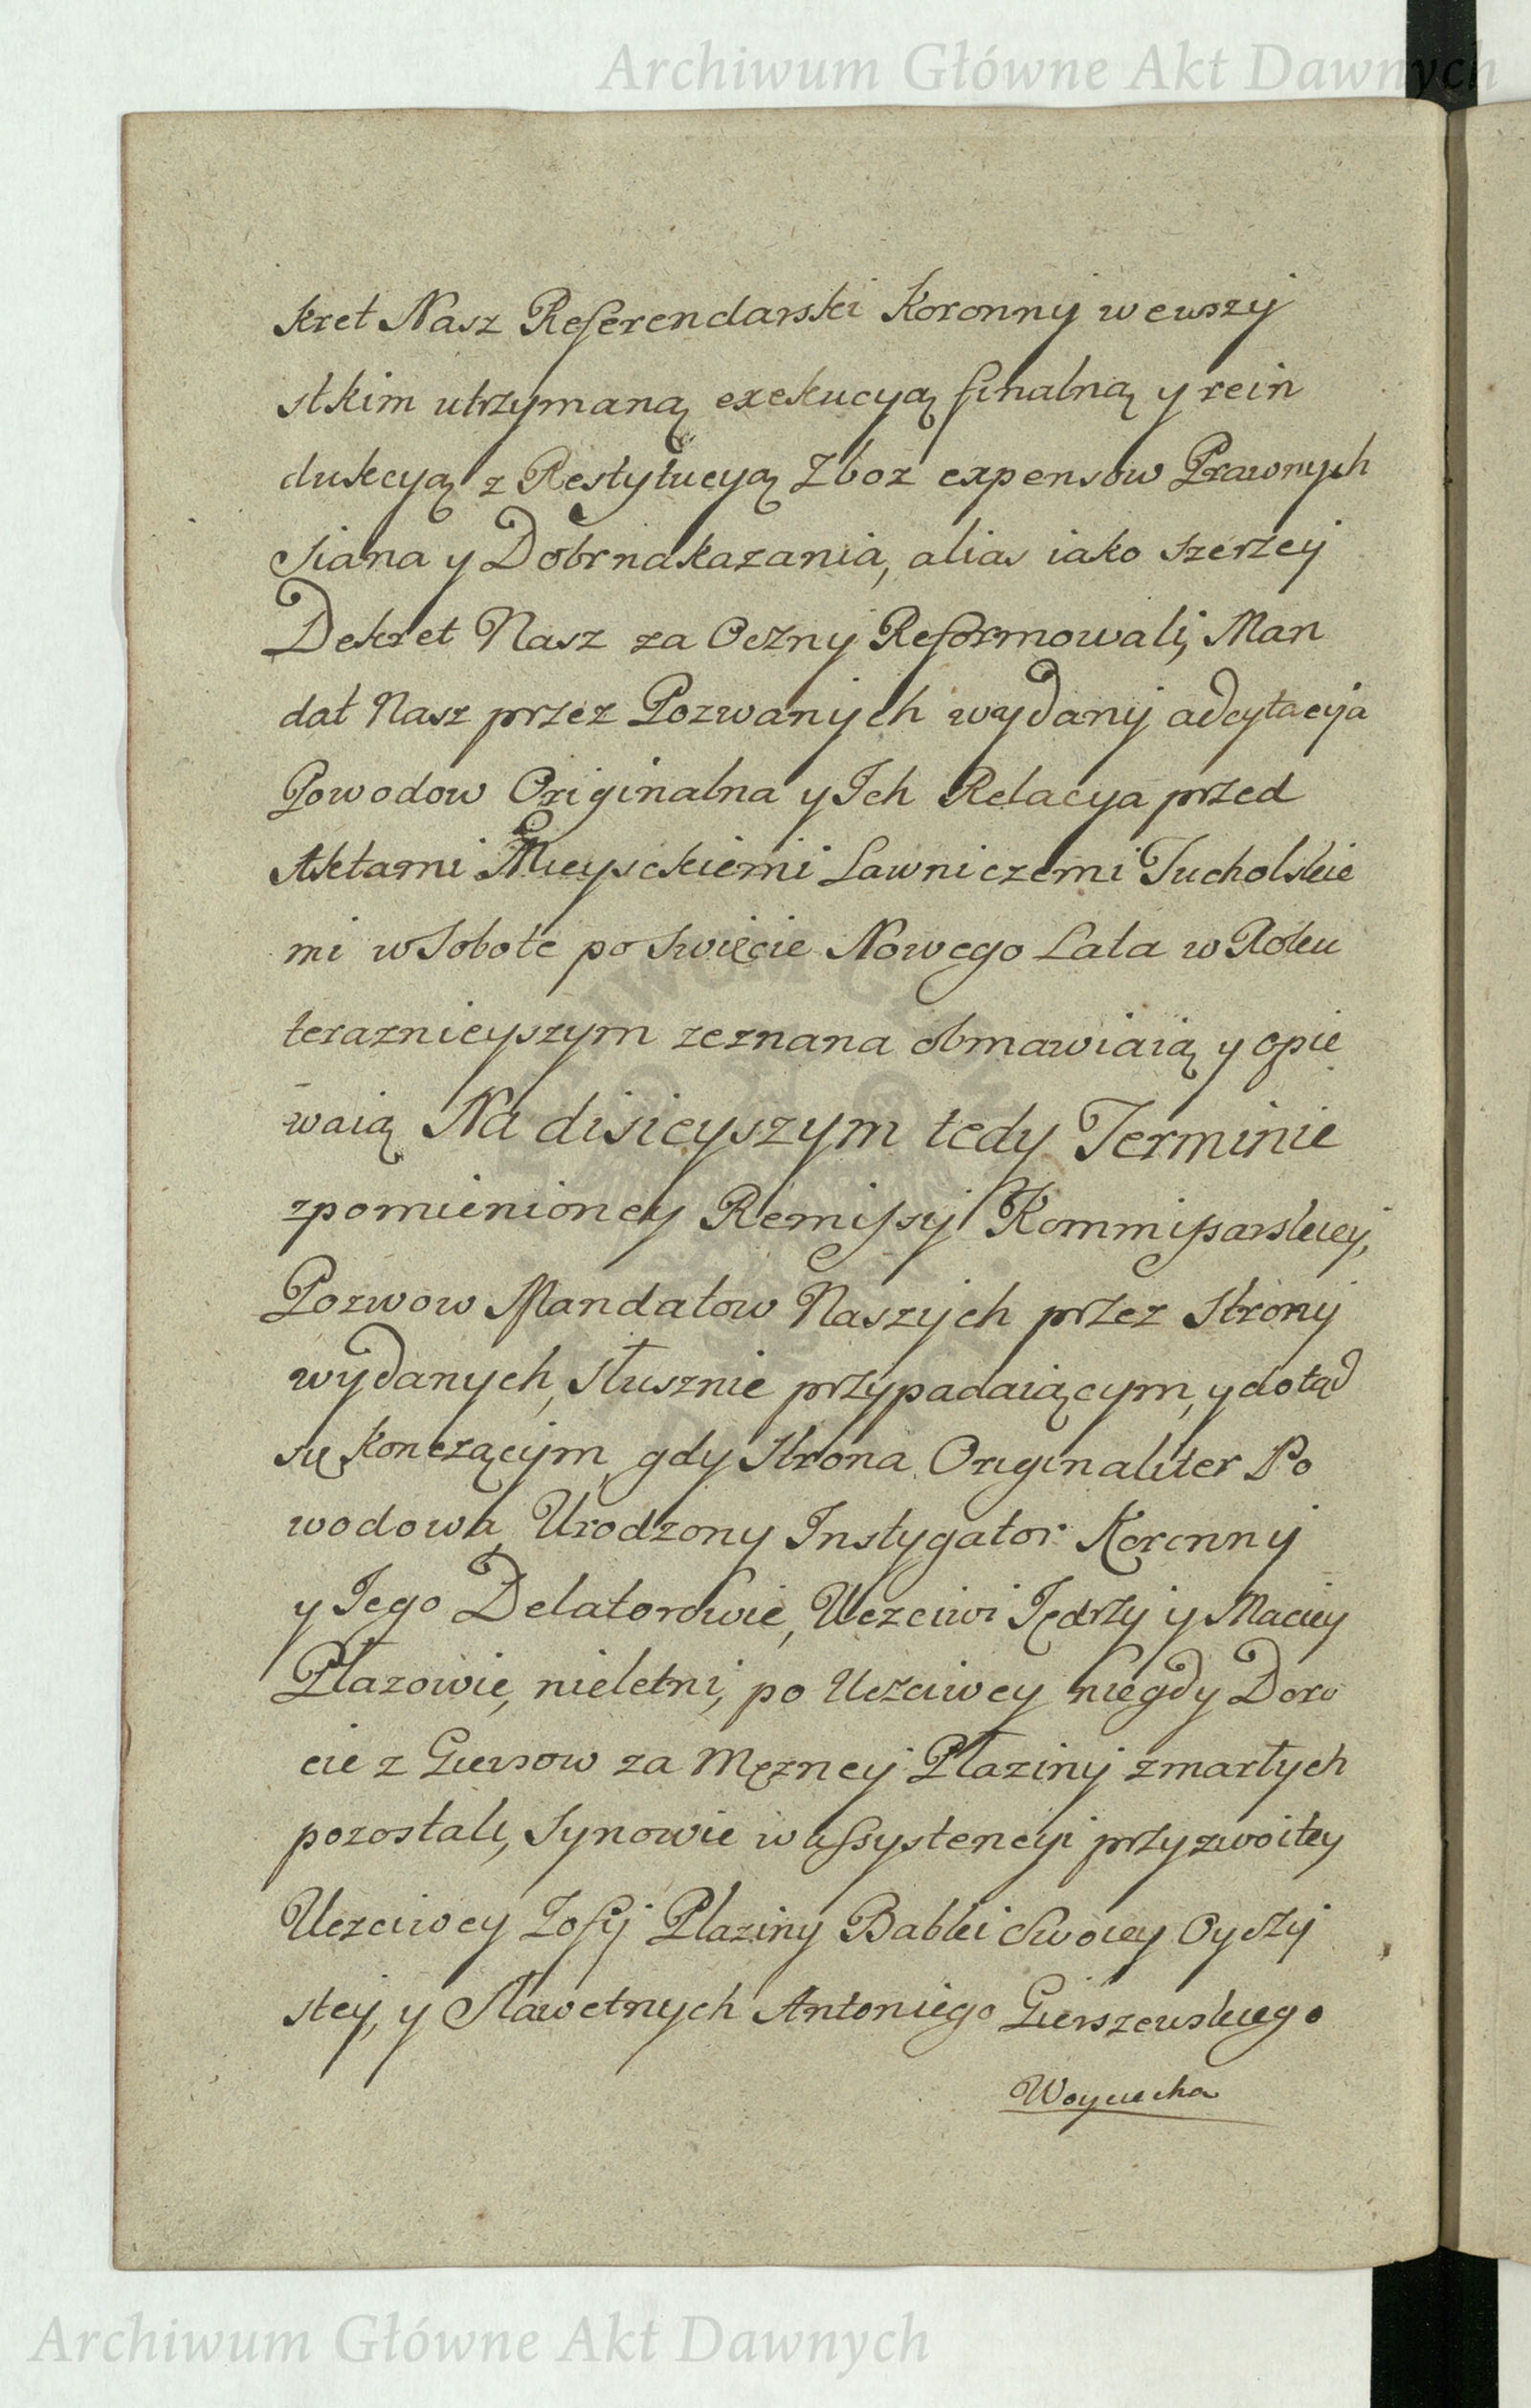 Archiwum Główne Akt Dawnych
kret Nasz Referendarski Koronny wewszy
stkim utrzymaną exekucyą finalną y rein
dukcyą z Restytucyą Zboz expensow Prawnych
Siana y Dobr nakazania, alias iako szerzey
Dekret Nasz za Oczny Reformowali, Man
dat Nasz przez Pozwanych wydany adcytacyia
Powodow Originalna y Ich Relacya przed
Aktami Mieysckiemi Lawniczemi Tucholskie
mi w Sobote po Swięcie Nowego Lata w Roku
teraznieyszym zeznana obmawiaią y opie
waią Na disieyszym tedy Terminie
zpomienioney Remissyi Kommissarskiey,
Pozwow Mandatow Naszych przez Strony
wydanych, słusznie przypadaiącym, y dotąd
się kończącym, gdy Strona Originaliter Po
wodowa Urodzony Instygator Koronny
y Jego Delatorowie, Uczciwi Jędrzy y Maciey
Płazowie, nieletni, po Uczciwey niegdy Doro
cie z Giersow za Męzney Płaziny zmarłych
pozostali, Synowie w assystencyi przyzwoitey
Uczciwey Zofij Plaziny Babki Swoiey Oyczy
stey, y Sławetnych Antoniego Gierszewskiego
Woyciecha
Archiwum Główne Akt Dawnych